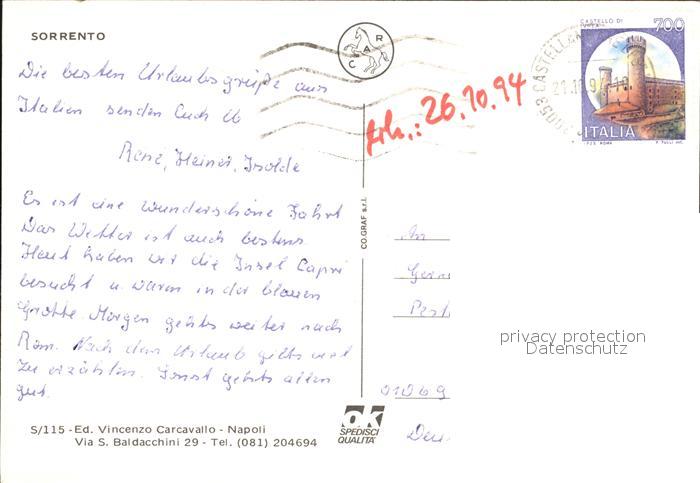 SORRENTO
Die besten Urlaubsgrüße aus
Italien senden Euch
René, Heiner, Isolde
Es ist eine wunderschöne Fahrt
Das Wetter ist auch bestens
Heut haben wir die Insel Capri
besucht u. waren in der blauen
Grotte Morgen gehts weiter nach
Rom. Nach dem Urlaub gibts viel
zu erzählen. Sonst gehts allen
gut.
S/115 - Ed. Vincenzo Carcavallo - Napoli
Via S. Baldacchini 29 - Tel. (081) 204694
CAR
CO.GRAF s.r.l.
erh.: 26.10.94
CASTELLO DI
700
80053 CASTELLAM
ITALIA
I.P.Z.S. ROMA
F. TULLI INC.
An
Pest
01069
ok
SPEDISCI
QUALITA'
privacy protection
Datenschutz